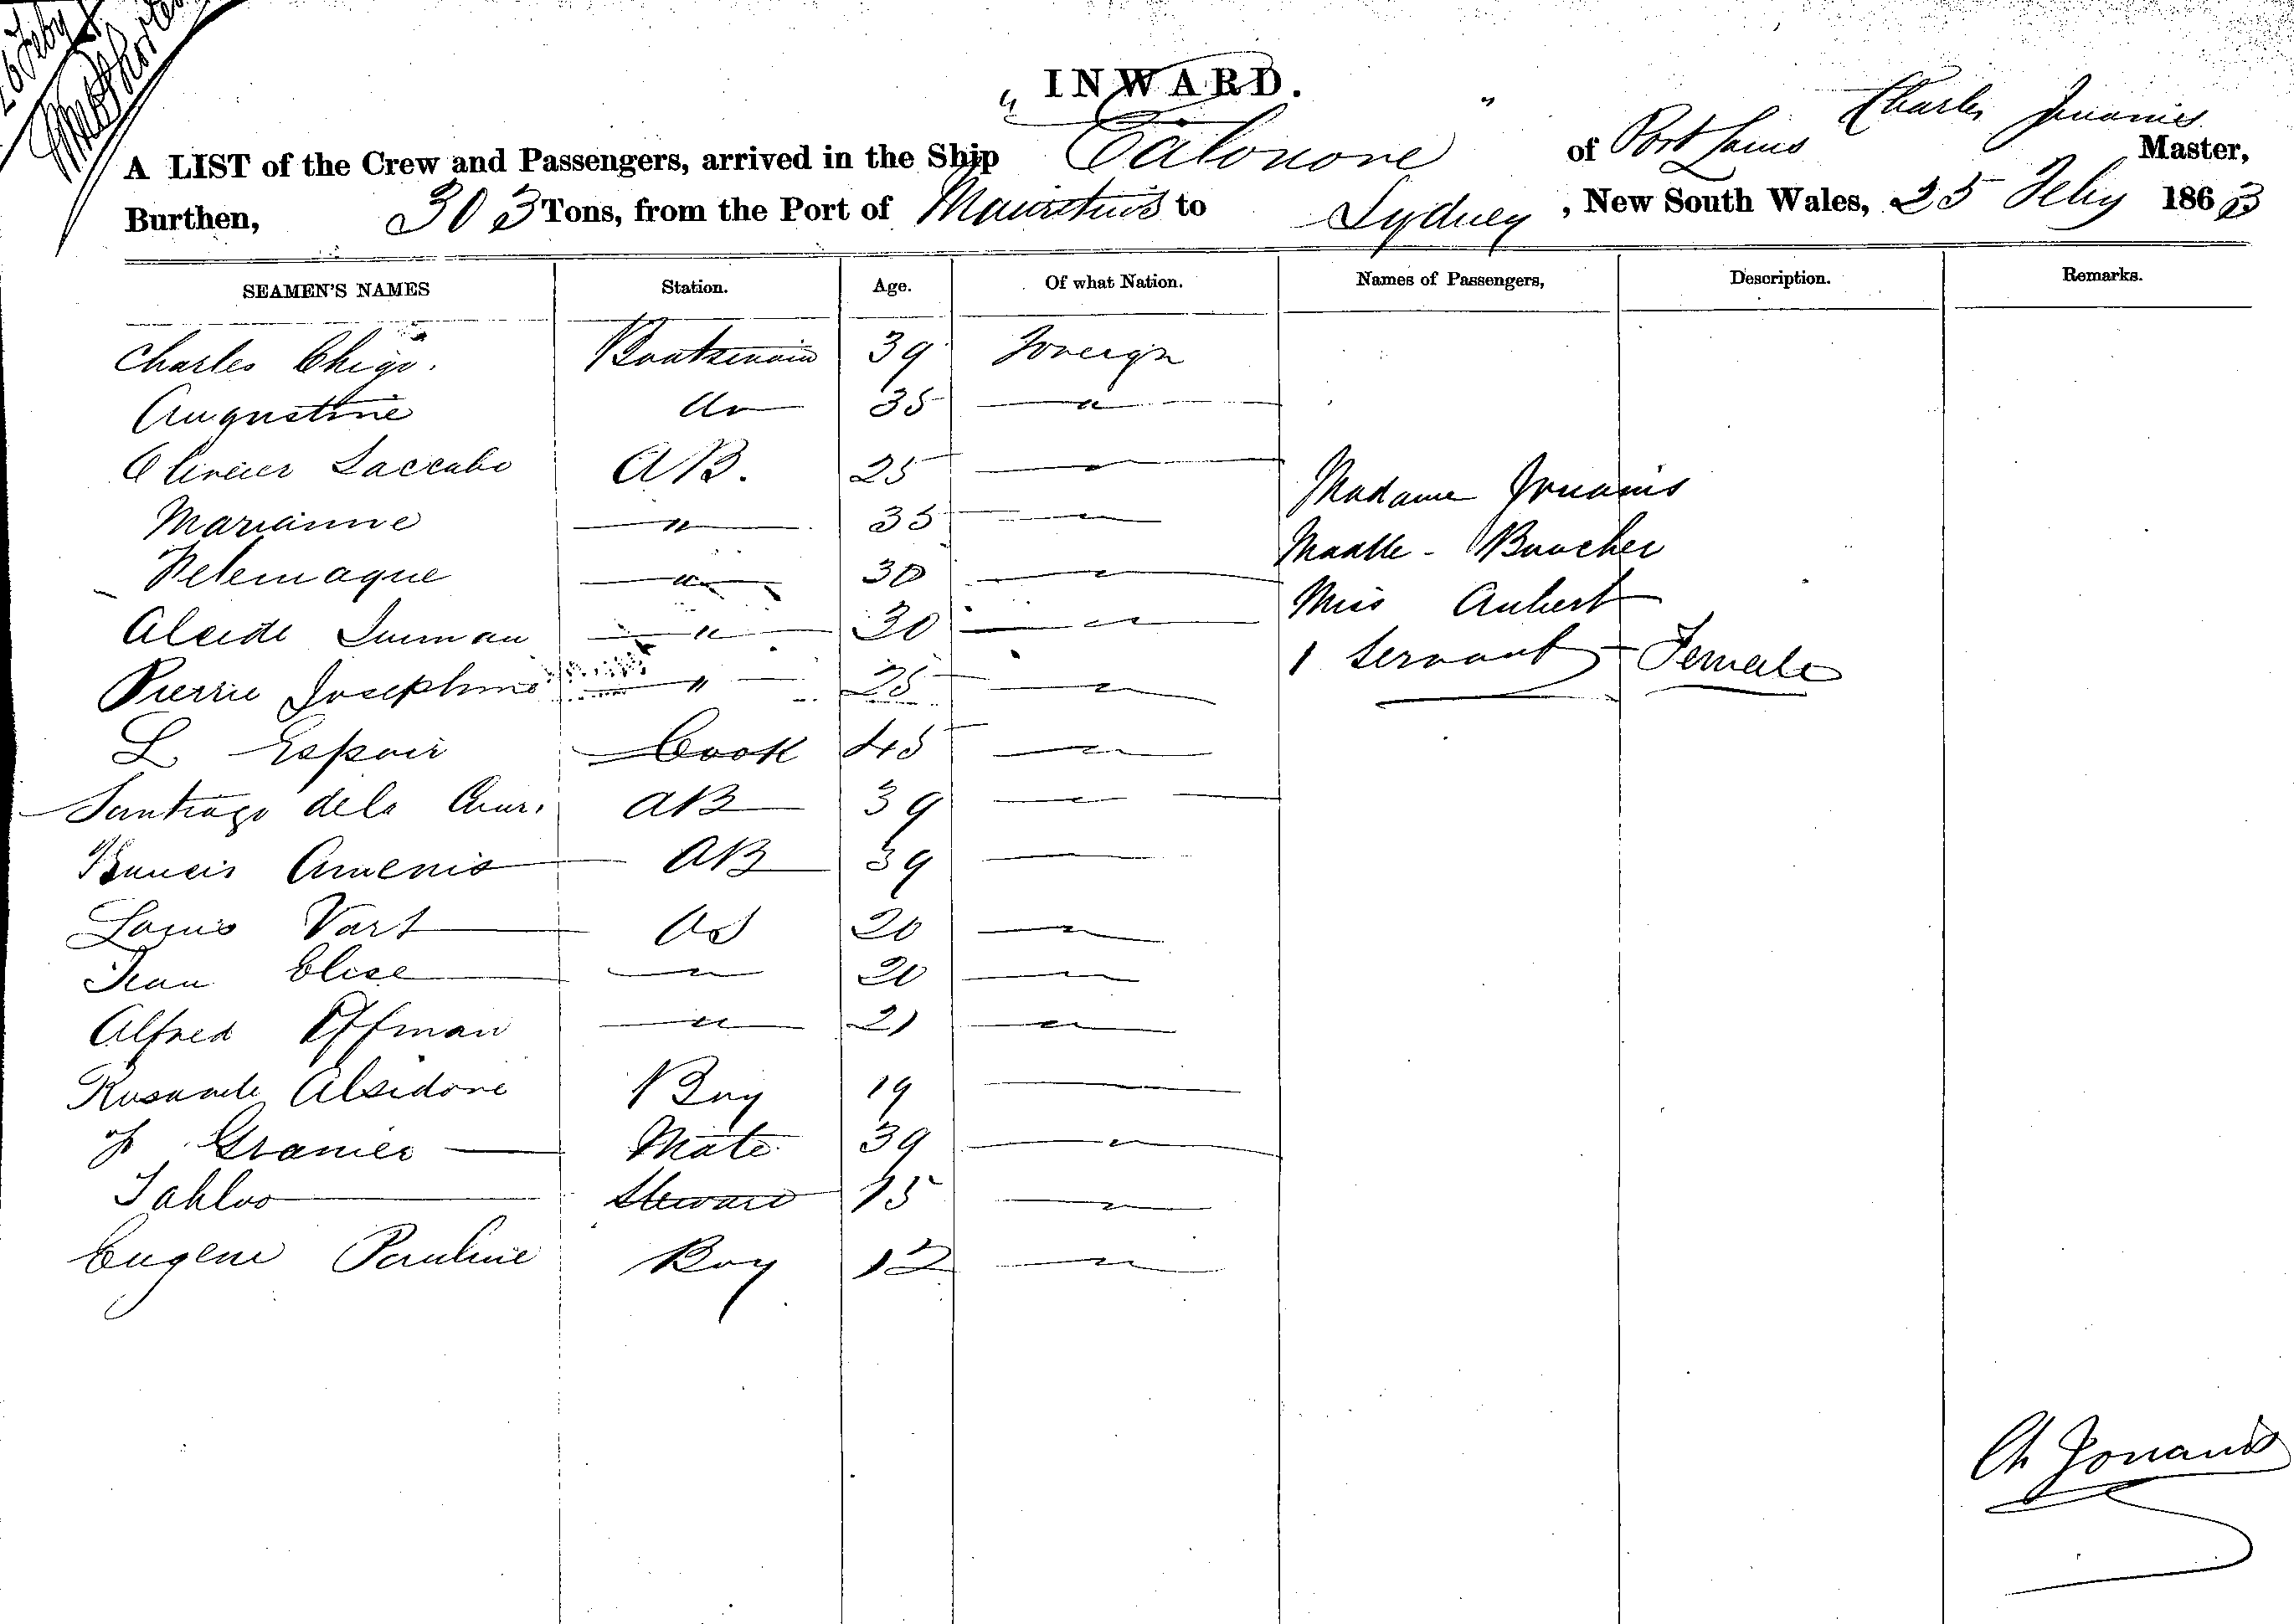 26 Feby
INWARD.
A LIST of the Crew and Passengers, arrived in the Ship " " of Port Louis Charles Jouanis Master,
Burthen, 303 Tons, from the Port of Mauritius to Sydney, New South Wales, 25 Feby 1863
SEAMEN'S NAMES Station. Age. Of what Nation. Names of Passengers, Description. Remarks.
Charles Boatswain 39 Foreign
Augustine do 35 "
AB. 25 "
Marianne " 35 "
Telemaque " 30 "
Madame Jouanis
Boucher
Miss Aubert
1 Servant - Female
Alcide " 30 "
Pierre Josephine " 25 "
L Espoir Cook 45 "
Santiago dela AB 39 "
Francis AB 39
Louis Vart OS 20 "
Jean Elise " 20 "
Alfred Offman " 21 "
Alsidore Boy 19
Granier Mate 39 "
Steward 15 "
Eugene Pauline Boy 12 "
Ch Jouanis